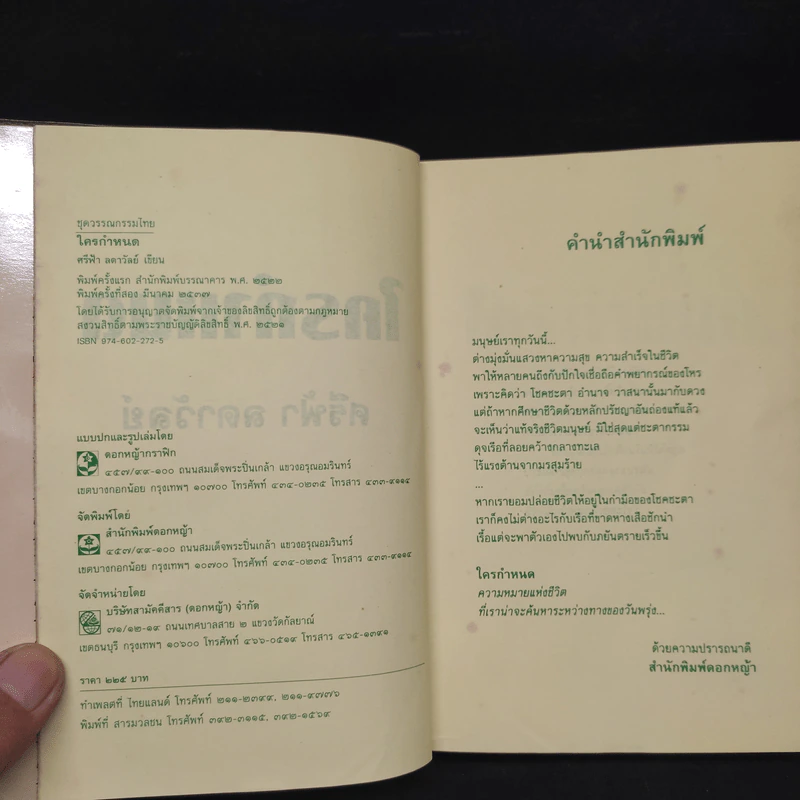 ชุดวรรณกรรมไทย
ใครกำหนด
ศรีฟ้า ลดาวัลย์ เขียน
พิมพ์ครั้งแรก สำนักพิมพ์บรรณาคาร พ.ศ. ๒๕๒๒
พิมพ์ครั้งที่สอง มีนาคม ๒๕๓๗
โดยได้รับการอนุญาตจัดพิมพ์จากเจ้าของลิขสิทธิ์ถูกต้องตามกฎหมาย
สงวนสิทธิ์ตามพระราชบัญญัติลิขสิทธิ์ พ.ศ. ๒๕๒๑
ISBN 974-602-272-5
แบบปกและรูปเล่มโดย
ดอกหญ้ากราฟิก
๔๕๗/๙๙-๑๐๐ ถนนสมเด็จพระปิ่นเกล้า แขวงอรุณอมรินทร์
เขตบางกอกน้อย กรุงเทพฯ ๑๐๗๐๐ โทรศัพท์ ๔๓๔-๐๒๓๕ โทรสาร ๔๓๓-๙๑๑๔
จัดพิมพ์โดย
สำนักพิมพ์ดอกหญ้า
๔๕๗/๙๙-๑๐๐ ถนนสมเด็จพระปิ่นเกล้า แขวงอรุณอมรินทร์
เขตบางกอกน้อย กรุงเทพฯ ๑๐๗๐๐ โทรศัพท์ ๔๓๔-๐๒๓๕ โทรสาร ๔๓๓-๙๑๑๔
จัดจำหน่ายโดย
บริษัทสามัคคีสาร (ดอกหญ้า) จำกัด
๗๑/๑๒-๑๙ ถนนเทศบาลสาย ๒ แขวงวัดกัลยาณ์
เขตธนบุรี กรุงเทพฯ ๑๐๖๐๐ โทรศัพท์ ๔๖๖-๐๕๑๙ โทรสาร ๔๖๕-๑๓๙๑
ราคา ๒๒๕ บาท
ทำเพลตที่ ไทยแลนด์ โทรศัพท์ ๒๑๑-๒๓๙๙, ๒๑๑-๙๗๗๖
พิมพ์ที่ สารมวลชน โทรศัพท์ ๓๙๒-๓๑๑๕, ๓๙๒-๑๕๖๙
คำนำสำนักพิมพ์
มนุษย์เราทุกวันนี้...
ต่างมุ่งมั่นแสวงหาความสุข ความสำเร็จในชีวิต
พาให้หลายคนถึงกับปักใจเชื่อถือคำพยากรณ์ของโหร
เพราะคิดว่า โชคชะตา อำนาจ วาสนานั้นมากับดวง
แต่ถ้าหากศึกษาชีวิตด้วยหลักปรัชญาอันถ่องแท้แล้ว
จะเห็นว่าแท้จริงชีวิตมนุษย์ มิใช่สุดแต่ชะตากรรม
ดุจเรือที่ลอยคว้างกลางทะเล
ไร้แรงต้านจากมรสุมร้าย
...
หากเรายอมปล่อยชีวิตให้อยู่ในกำมือของโชคชะตา
เราก็คงไม่ต่างอะไรกับเรือที่ขาดหางเสือชักนำ
เรื่อแต่จะพาตัวเองไปพบกับภยันตรายเร็วขึ้น
ใครกำหนด
ความหมายแห่งชีวิต
ที่เราน่าจะค้นหาระหว่างทางของวันพรุ่ง...
ด้วยความปรารถนาดี
สำนักพิมพ์ดอกหญ้า